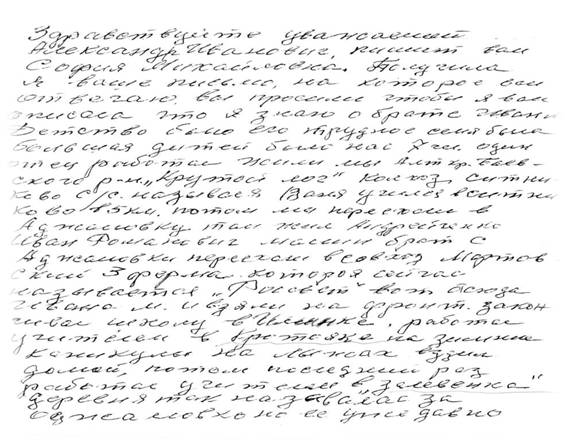 Здравствуйте уважаемый
Александр Иванович, пишет вам
София Михайловна. Получила
я ваше письмо, на которое вам
отвечаю. Вы просили чтобы я вам
описала что я знаю о брате Иване
Детство было его трудное семья была
большая детей было нас 7 чел. один
отец работал жили мы Алт.кр. Баев-
ского р-н. „Крутой лог" колхоз, ситни
ково с/с. назывался Ваня учился в ситни
ково 15 км. потом мы переехали в
Аджамовку там жил
Иван Романович мамин брат с
Аджамовки переехали в совхоз Мартов
ский 3 ферма. которая сейчас
называется „Рассвет" вот отсюда
Ивана М. и взяли на фронт. закон
чивал школу в Илинке. работал
учителем в на зимние
каникулы на лыжах ездил
домой, потом последний раз
работал учителем в
деревня так называлась за
но ее уже давно